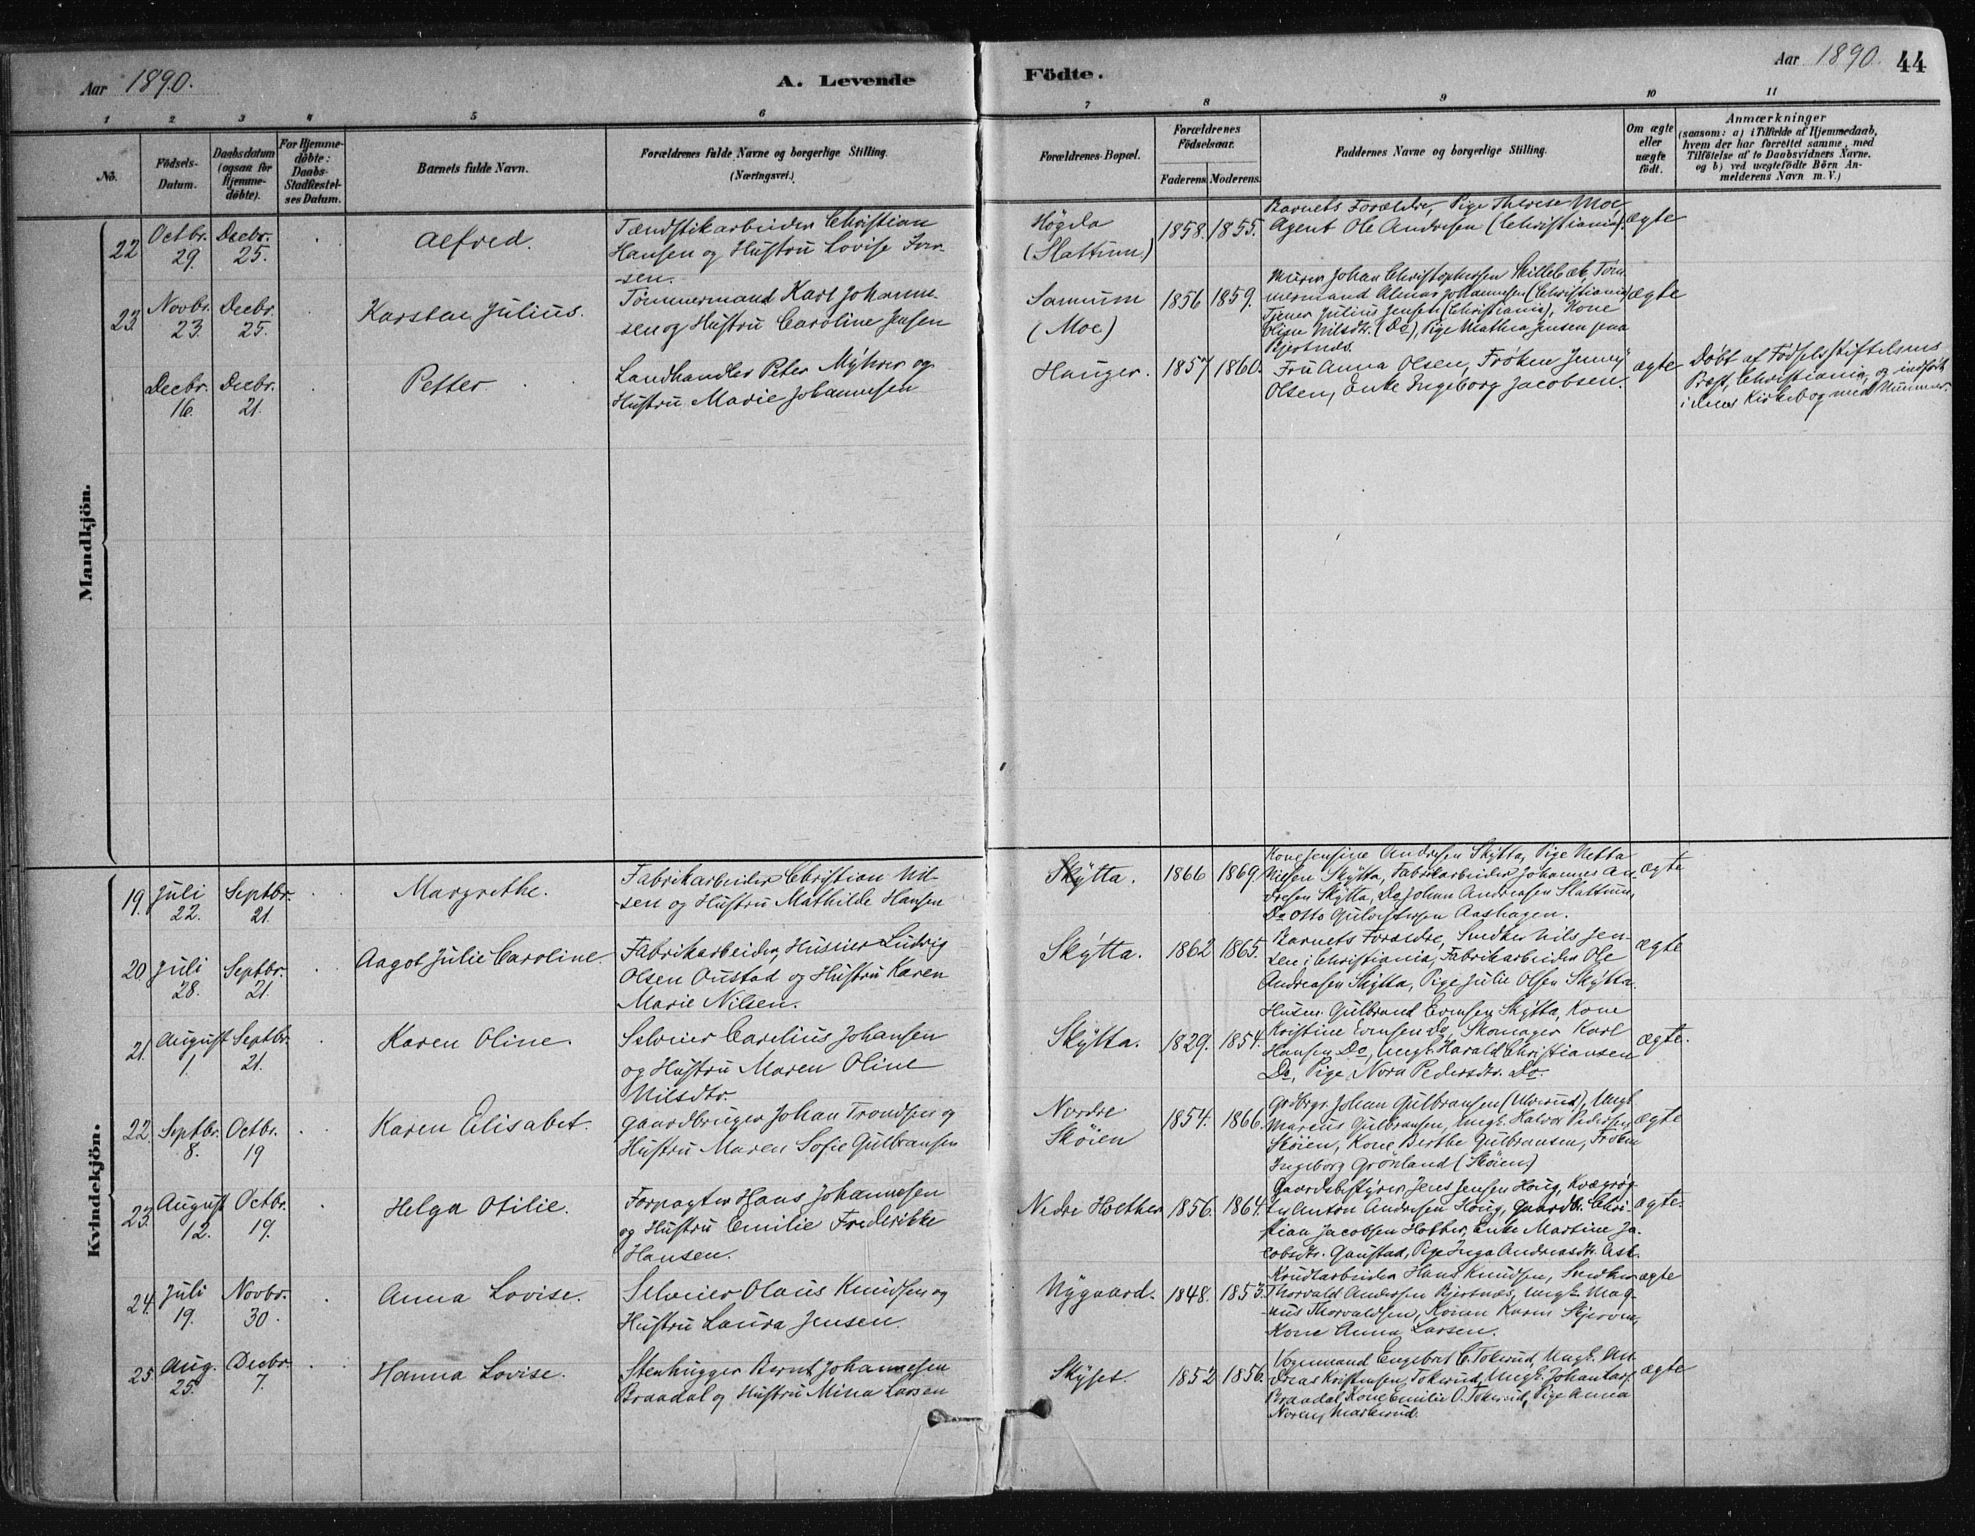 Aar 1890.
A. Levende
Födte.
Aar 1890. 44
1 2 3 4 5 6 7 8 9 10 11
No. Födsels-Datum. Daabsdatum (ogsaa för Hjemmedöbte). For Hjemmedöbte: Daabs-Stadfæstelses Datum. Barnets fulde Navn. Forældrenes fulde Navne og borgerlige Stilling. (Næringsvei.)
Forældrenes Bopæl. Forældrenes Födselsaar. Faderens Moderens. Faddernes Navne og borgerlige Stilling. Om ægte eller uægte födt. Anmærkninger (saasom: a) i Tilfælde af Hjemmedaab, hvem der har forrettet samme, med Tilföielse af to Daabsvidners Navne, og b) ved uægtefödte Börn Anmelderens Navn m. V.)
Mandkjön.
22 Octbr. 29. Decbr. 25. Alfred.
Tændstikarbeider Christian
Hansen og Hustru Lovise Iver-
sen.
Högda
(Slattum)
1858. 1855.
Barnets Forældre, Pige Therese Moe
Agent Ole Andresen (Christiania).
ægte
23. Novbr. 23. Decbr. 25. Karsten Julius.
Tømmermand Karl Johanne-
sen og Hustru Caroline Jensen
(Moe)
1856 1859.
Murer Johan Christophersen Skillebæk, Tøm-
mermand Johannesen (Christiania)
Tjener Julius Jensen (Christiania), Kone
Nilsdtr. (Do), Pige Mathea Jensen
Bjertnes.
ægte
Decbr. 16. Decbr. 21. Petter
Landhandler Peter Mÿhrer og
Hustru Marie Johannesen
Hauger. 1857 1860.
Fru Anna Olsen, Frøken Jenny
Olsen, Enke Ingeborg Jacobsen.
ægte
Døbt af Fødselsstiftelsens
Præst, Christiania, og indført
i dens Kirkebog med Nummer.
Kvindekjön.
19. Juli 22. Septbr. 21. Margrethe.
Fabrikarbeider Christian Nil-
sen og Hustru Mathilde Hansen
Skÿtta. 1866 1869.
Kone Jensine Andresen Skÿtta, Pige Netta
Nilsen Skÿtta, Fabrikarbeider Johannes An-
dresen Skÿtta, Do Johan Andreasen Slattum,
Do Otto Gulbrandsen Aashagen.
ægte
20 Juli 28. Septbr. 21. Aagot Julie Caroline.
Fabrikarbeider, Huseier Ludvig
Olsen Oustad og Hustru Karen
Marie Nilsen.
Skÿtta. 1862 1865.
Barnets Forældre, Snedker Nils Jen-
sen i Christiania, Fabrikarbeider Ole
Andreasen Skÿtta, Pige Julie Olsen Skÿtta.
ægte
21. August 1 Septbr. 21. Karen Oline
Selveier Carelius Johansen
og Hustru Maren Oline
Nilsdtr
Skÿtta. 1829. 1854.
Husm. Gulbrand Evensen Skÿtta, Kone
Kristine Evensen Do, Skomager Karl
Hansen Do, Ungk. Harald Christiansen
Do, Pige Nora Pedersdtr. Do.
ægte.
22. Septbr. 8. Octbr. 19 Karen Elisabet.
Gaardbruger Johan Trondsen og
Hustru Maren Sofie Gulbransen
Nordre
Skøien
1854. 1866.
Grdbrgr. Johan Gulbransen (Ulverud), Ungk
Marcus Gulbransen, Ungk. Halvor Pedersen
Skøien, Kone Berthe Gulbransen, Frøken
Ingeborg Grönland (Skøien)
ægte
23. August 12. Octbr. 19. Helga Otilie.
Forpagter Hans Johannesen
og Hustru Emilie Frederikke
Hansen.
Nedre Holther 1856. 1864.
Gaardsbestyrer Jens Jensen Houg, Kvægrøg-
ter Anton Andresen Houg, Gaardb. Chri-
stian Jacobsen Holther, Enke Martine Ja-
cobsdtr. Gaustad, Pige Inga Andreasdtr. Ask.
ægte.
24. Juli 19. Novbr. 30. Anna Lovise.
Selveier Olaus Knudsen og
Hustru Laura Jensen.
Nygaard. 1848. 1853.
Krudtarbeider Hans Knudsen, Snedker
Thorvald Andersen Bjertnæs, Ungk. Mag-
nus Thorvaldsen, Karen Skjerven,
Kone Anna Larsen.
ægte
25. Aug. 25. Decbr. 7. Hanna Lovise.
Stenhugger Bernt Johannesen
Braadal og Hustru Mina Larsen
Skÿset. 1852 1856.
Vognmand Engebret C. Tokerud, Ungk. An-
dreas Kristensen, Tokerud, Ungk. Johan Lars.
Braadal, Kone Emilie O. Tokerud, Pige Anna
Noren, Markerud.
ægte